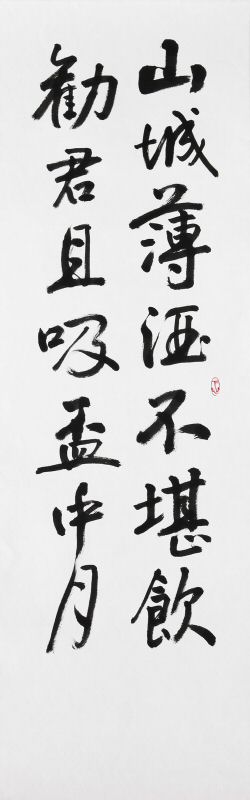 山城薄酒不堪飲
勸君且吸盃中月